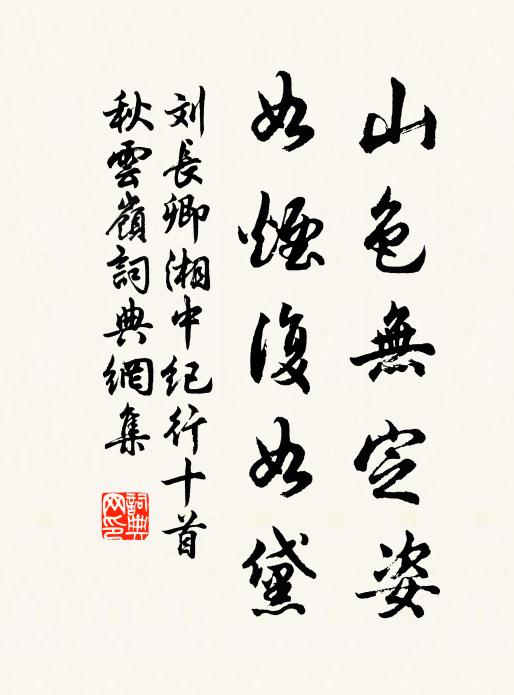 山色無定姿
如煙復如黛
刘長卿湘中紀行十首
秋雲嶺詞典網集
詞典
网印